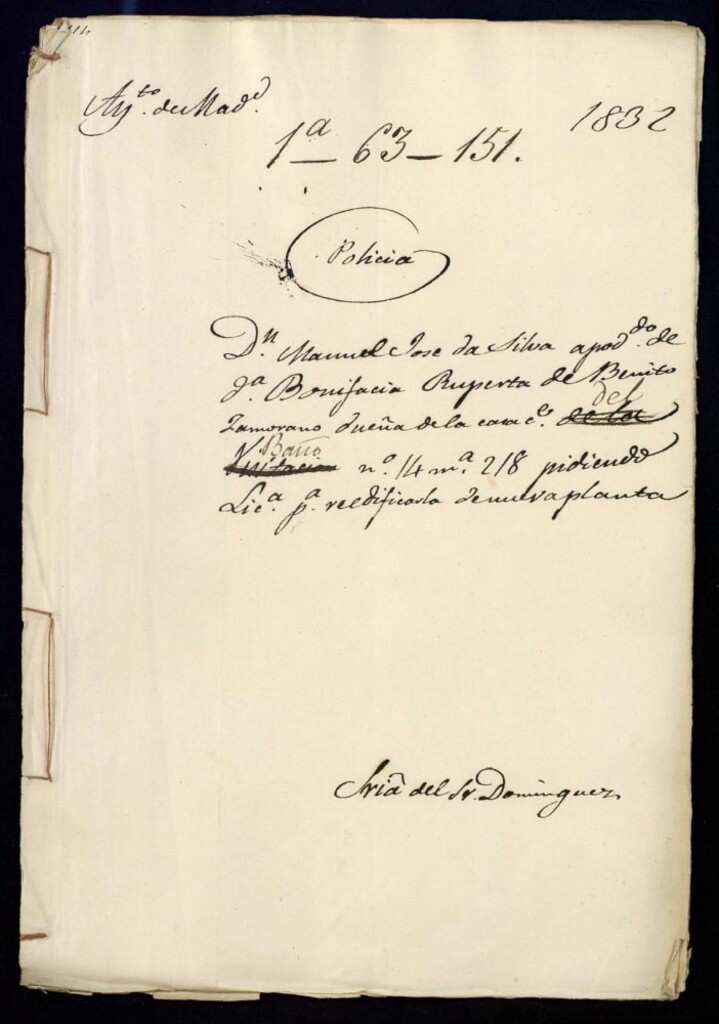 Ay.to de Mad.d
1832
1.a - 63 - 151.
Policia
D.n Manuel Jose da Silva apod.do de
d.a Bonifacia Ruperta de Benito
Zamorano dueña de la casa c.e de la del
Visitacion Baño n.o 14 m.a 218 pidiendo
Lic.a p.a reedificarla de nueva planta
Sria del Sr. Dominguez